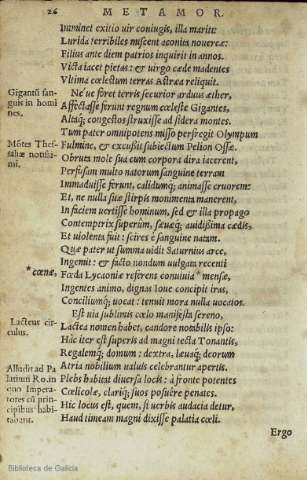 26
METAMOR.
Imminet exitio uir coniugis, illa mariti:
Lurida terribiles miscent aconita nouercæ:
Filius ante diem patrios inquirit in annos.
Victa iacet pietas: & uirgo cæde madentes
Vltima cœlestum terras Astræa reliquit.
Gigantũ san-
guis in homi
nes.
Ne ue foret terris securior arduus æther,
Affectasse ferunt regnum cœleste Gigantes,
Altaq; congestos struxisse ad sidera montes.
Tum pater omnipotens misso perfregit Olympum
Mõtes Thes-
saliæ notissi-
mi.
Fulmine, & excussit subiectum Pelion Ossæ.
Obruta mole sua cum corpora dira iacerent,
Perfusam multo natorum sanguine terram
Immaduisse ferunt, calidumq; animasse cruorem:
Et, ne nulla suæ stirpis monumenta manerent,
In faciem uertisse hominum, sed & illa propago
Contemptrix superûm, sæuæq; auidissima cædis,
Et uiolenta fuit: scires è sanguine natam.
Quæ pater ut summa uidit Saturnius arce,
Ingemit: & facto nondum uulgata recenti
*cœnæ,
Fœda Lycaoniæ referens conuiuia *mensæ,
Ingentes animo, dignas Ioue concipit iras,
Conciliumq; uocat: tenuit mora nulla uocatos.
Est uia sublimis cœlo manifesta sereno,
Lacteus cir-
culus.
Lactea nomen habet, candore notabilis ipso:
Hàc iter est superis ad magni tecta Tonantis,
Regalemq; domum: dextra, leuaq; deorum
Alludit ad Pa
latium Ro. in
quo Impera-
tores cũ prin-
cipibus habi-
tabant.
Atria nobilium ualuis celebrantur apertis.
Plebs habitat diuersa locis: à fronte potentes
Cœlicolæ, clariq; suos posuêre penates.
Hic locus est, quem, si uerbis audacia detur,
Haud timeam magni dixisse palatia cœli.
Ergo
Biblioteca de Galicia